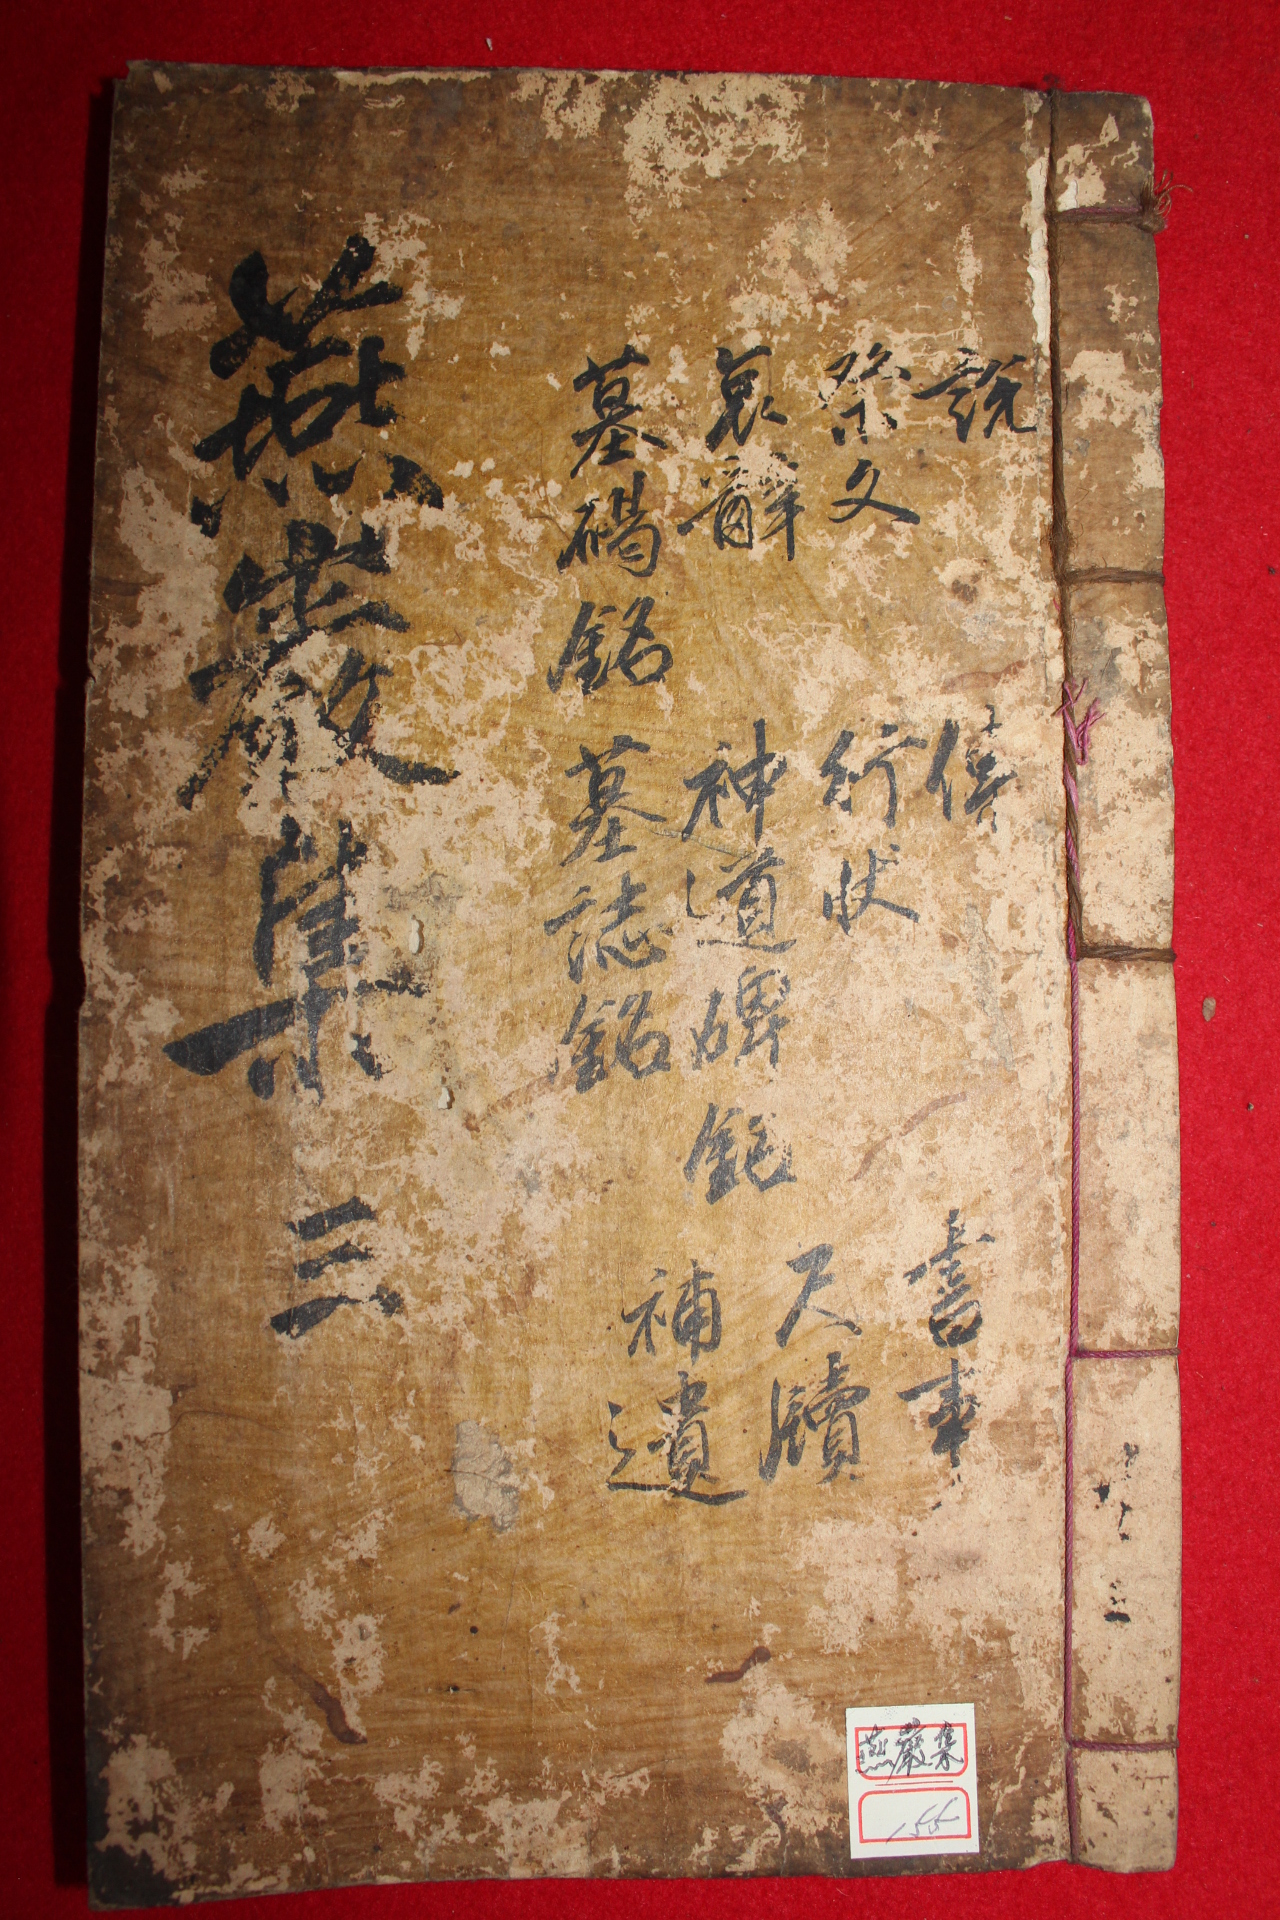 說 傳 書事
祭文 行狀 尺牘
哀辭 神道碑銘 補遺
墓碣銘 墓誌銘
燕巖集 三
燕巖集
155